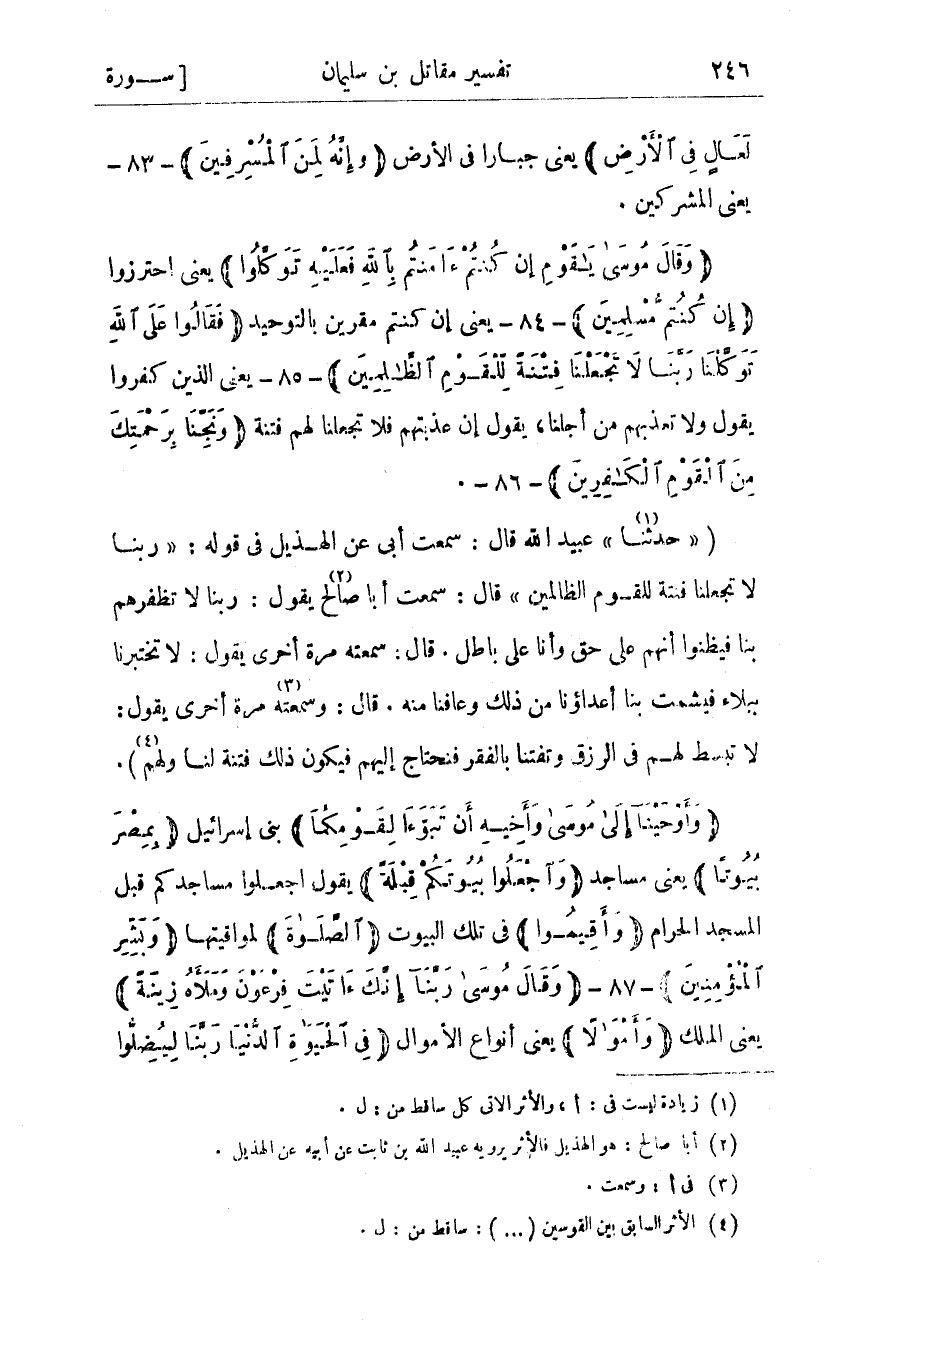 ٢٤٦ تفسير مقاتل بن سليمان [ ســـورة
لَعَـالٍ فِي ٱلْأَرْضِ ﴾ يعنى جبـارا فى الأرض ﴿ وإِنَّهُ لَمِنَ ٱلْمُسْرِفِينَ ﴾ – ٨٣ –
يعنى المشركين .
﴿ وَقَالَ مُوسَىٰ يَـٰقَوْمِ إِن كُنتُمْ ءَامَنتُم بِٱللَّهِ فَعَلَيْهِ تَوَكَّلُوٓا ﴾ يعنى احترزوا
﴿ إِن كُنتُم مُّسْلِمِينَ ﴾ – ٨٤ – يعنى إن كنتم مقرين بالتوحيد ﴿ فَقَالُوا عَلَى ٱللَّهِ
تَوَكَّلْنَا رَبَّنَـا لَا تَجْعَلْنَا فِتْنَةً لِّلْقَـوْمِ ٱلظَّـٰلِمِينَ ﴾ – ٨٥ – يعنى الذين كفروا
يقول ولا تعذبهم من أجلنا، يقول إن عذبتهم فلا تجعلنا لهم فتنة ﴿ وَنَجِّنَا بِرَحْمَتِكَ
مِنَ ٱلْقَوْمِ ٱلْكَـٰفِرِينَ ﴾ – ٨٦ – .
( « حدثنـا » (١) عبيد الله قال : سمعت أبى عن الهـذيل فى قوله : « ربنـا
لا تجعلنا فتنة للقـوم الظالمين » قال : سمعت أبا صالح (٢) يقول : ربنا لا تظفرهم
بنا فيظنوا أنهم على حق وأنا على باطل . قال : سمعته مرة أخرى يقول : لا تختبرنا
ببلاء فيشمت بنا أعداؤنا من ذلك وعافنا منه . قال : وسمعته (٣) مرة أخرى يقول :
لا تبسط لهـم فى الرزق وتفتنا بالفقر فنحتاج إليهم فيكون ذلك فتنة لنـا ولهم (٤) ) .
﴿ وَأَوْحَيْنَـآ إِلَىٰ مُوسَىٰ وَأَخِيـهِ أَن تَبَوَّءَا لِقَـوْمِكُمَا ﴾ بنى إسرائيل ﴿ بِمِصْرَ
بُيُـوتًا ﴾ يعنى مساجد ﴿ وَٱجْعَلُوا بُيُـوتَكُمْ قِبْلَةً ﴾ يقول اجعـلوا مساجدكم قبل
المسجد الحرام ﴿ وَأَقِيمُـوا ﴾ فى تلك البيوت ﴿ ٱلصَّلَـوٰةَ ﴾ لمواقيتهـا ﴿ وَبَشِّرِ
ٱلْمُؤْمِنِينَ ﴾ – ٨٧ – ﴿ وَقَالَ مُوسَىٰ رَبَّنَآ إِنَّكَ ءَاتَيْتَ فِرْعَوْنَ وَمَلَأَهُ زِينَةً ﴾
يعنى الملك ﴿ وَأَمْوَٰلًا ﴾ يعنى أنواع الأموال ﴿ فِي ٱلْحَيَوٰةِ ٱلدُّنْيَا رَبَّنَا لِيُضِلُّوا
(١) زيادة ليست فى : أ ، والأثر الآتى كل ساقط من : ل .
(٢) أبا صالح : هو الهذيل فالأثر يرويه عبيد الله بن ثابت عن أبيه عن الهذيل .
(٣) فى أ : وسمعت .
(٤) الأثر السابق بين القوسين ( ... ) : ساقط من : ل .